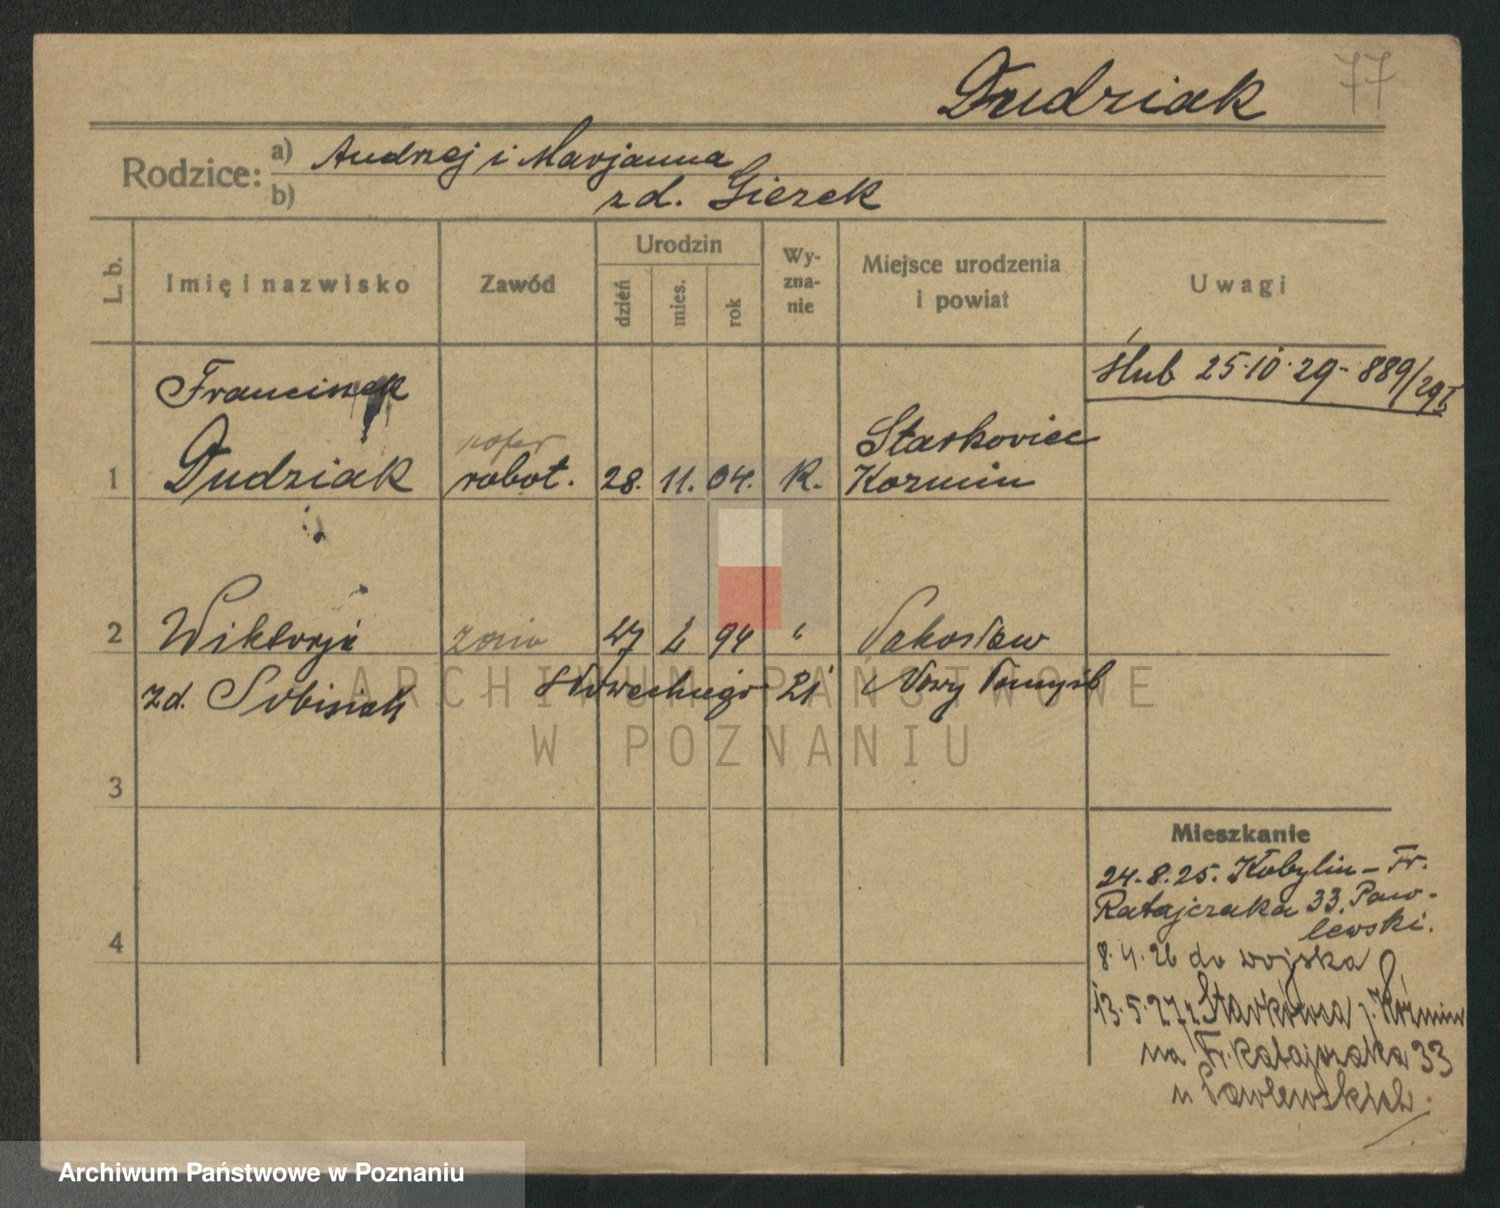 Dudziak 77
Rodzice: a) Andrzej i Marjanna
b) zd. Gierek
L. b. Imię i nazwisko Zawód Urodzin dzień mies. rok Wyznanie Miejsce urodzenia i powiat Uwagi
ślub 25·10·29 - 889/29 I
Franciszek
Starkowiec
1 Dudziak robot. 28. 11. 04. K. Kozmin
2 Wiktorja żona 27 2 94 " Jakosław
zd. Sobisiak 21 Nowy Tomyśl
ARCHIWUM PAŃSTWOWE
W POZNANIU
3
Mieszkanie
24.8.25. Kobylin - Fr.
Ratajczaka 33. Paw-
lewski.
4
8.4.26 do wojska
13.5.27 z Starkówca p. Koźmin
na Fr. Ratajczaka 33
u Pawlewskich.
Archiwum Państwowe w Poznaniu